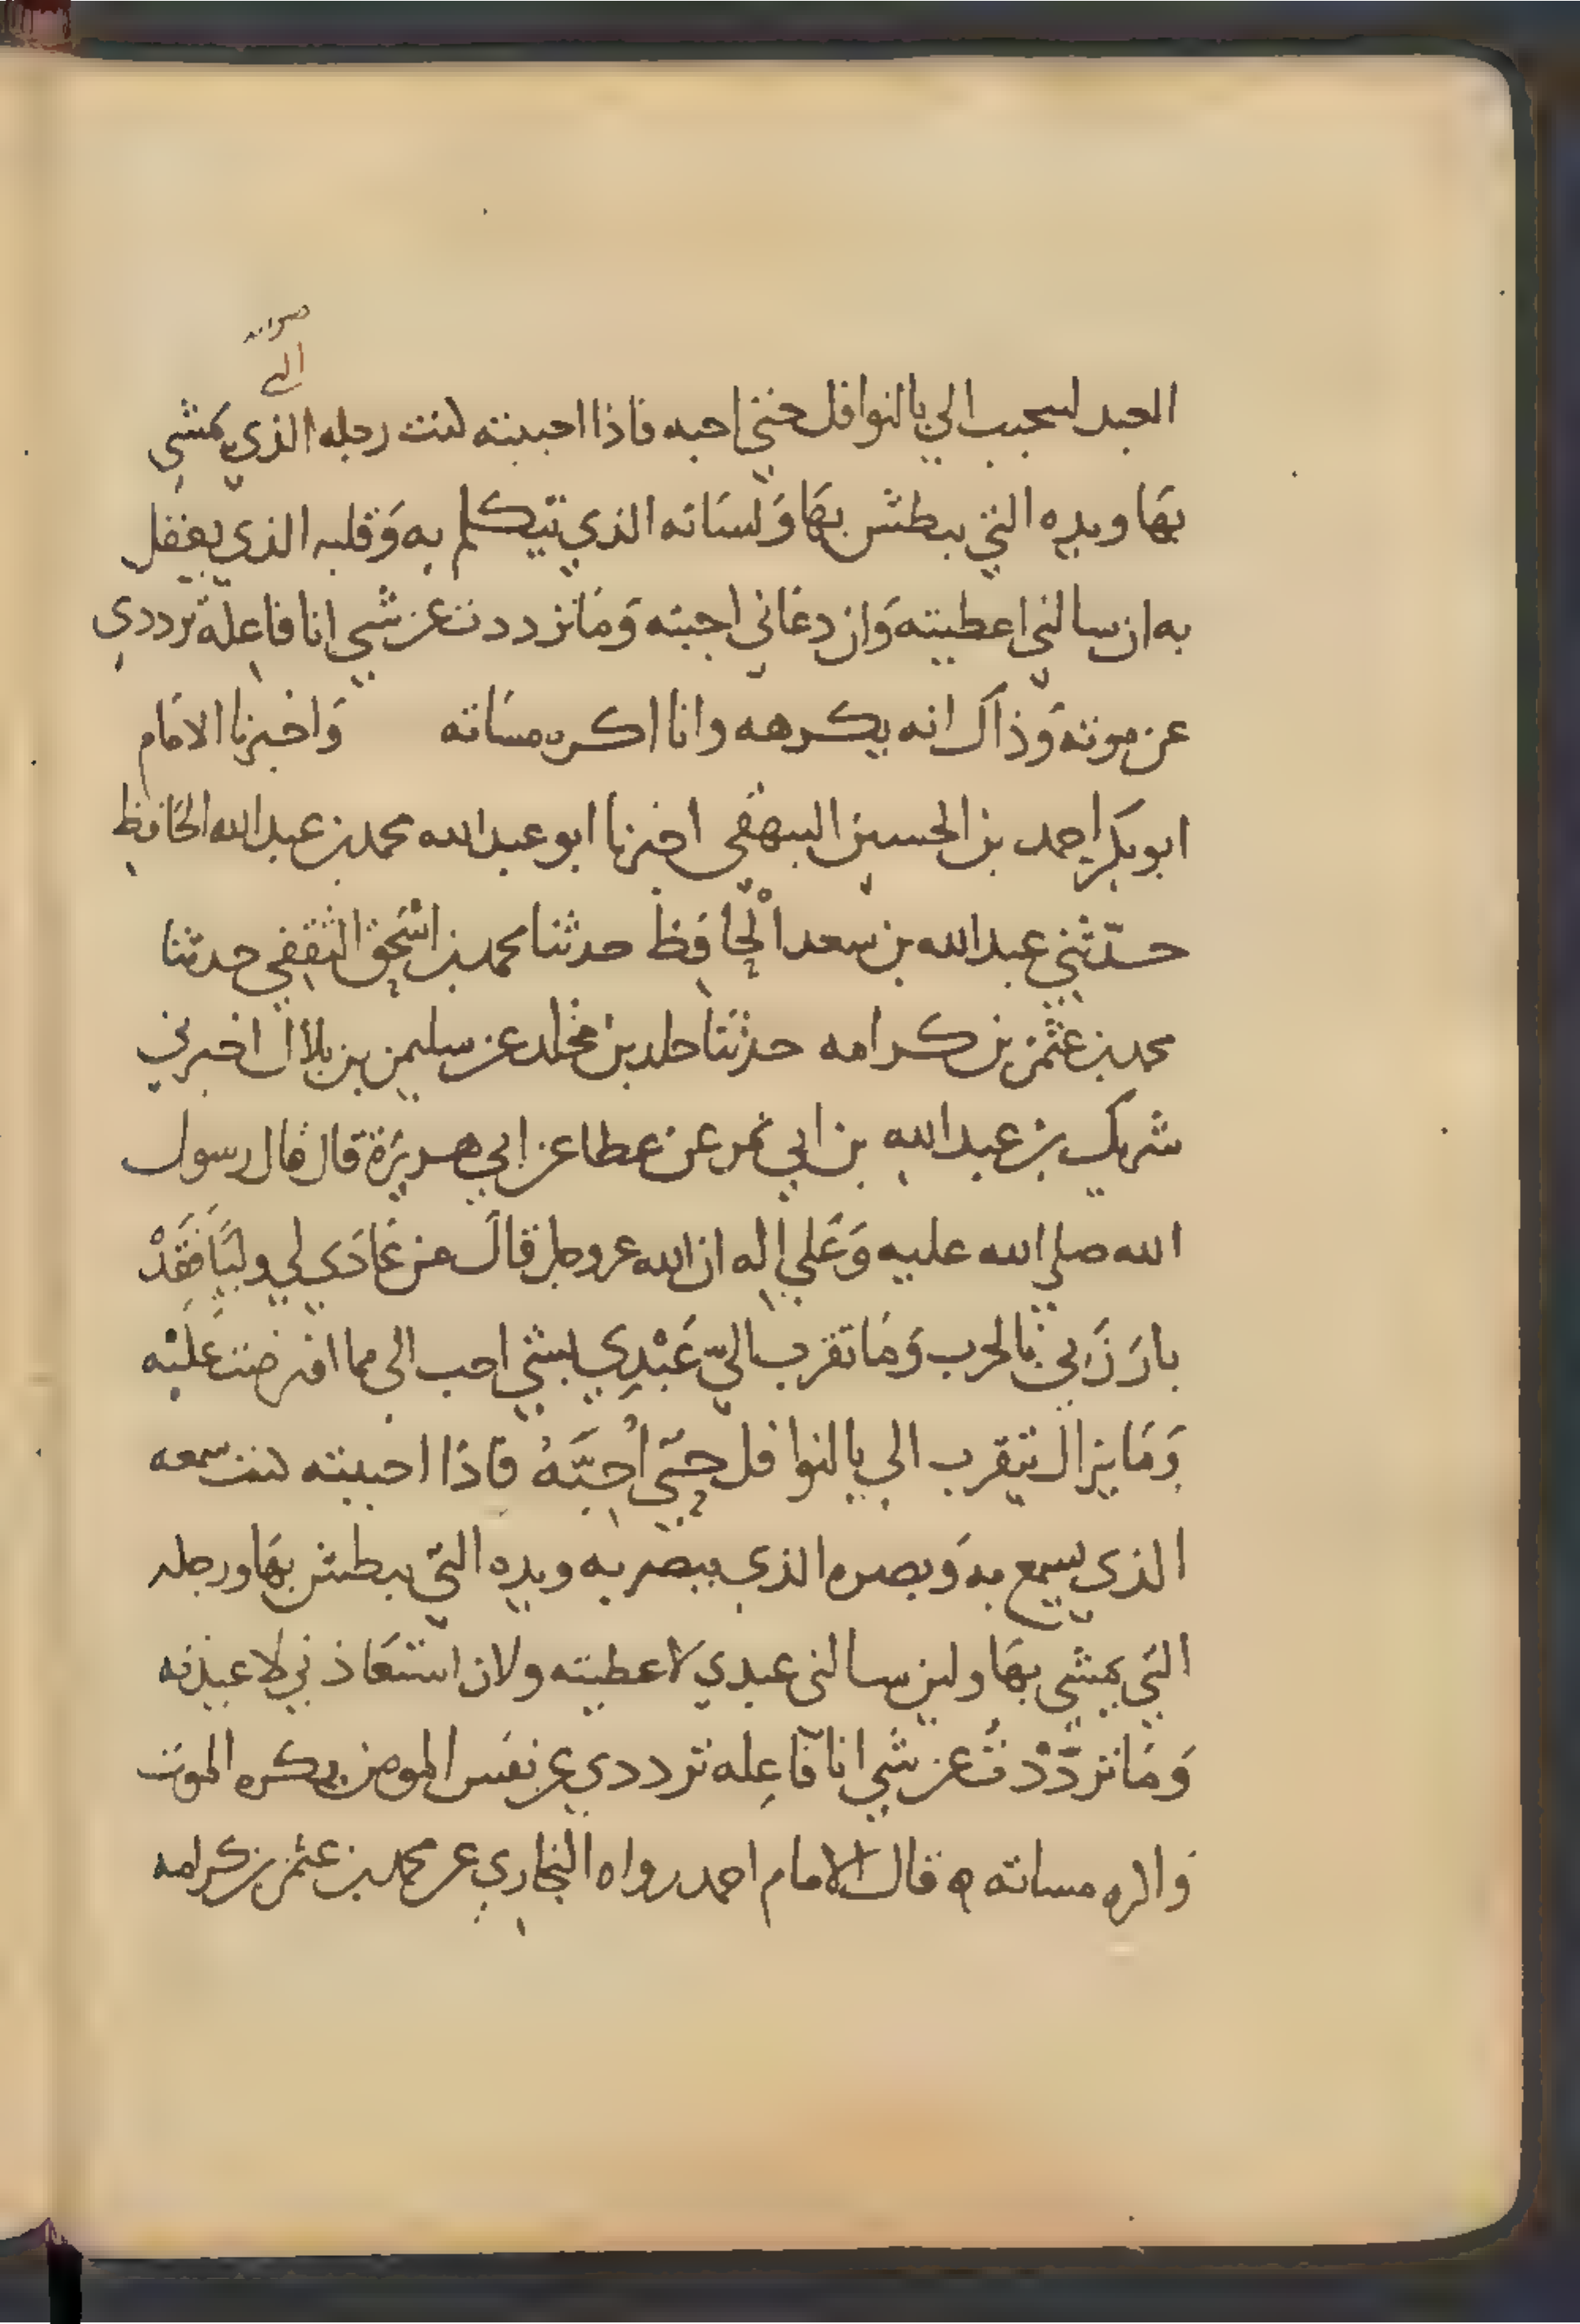 صوابه
التي
العبد لىحبب الي بالنوافل حتي احبه فاذا احببته كنت رجله الذي يمشي
بهَا ويده التي يبطش بهَا وَلسَانه الذي يتكلم به وَقلبه الذي يعقل
به ان سالني اعطيته وَان دعَاني اجبته وَمَا ترددت عن شي انا فاعله ترددي
عن موته وَذاك انه يكرهه وانا اكره مسَاته وَاخبرنا الامَام
ابو بكر احمد بن الحسين البيهقي اخبرنا ابو عبد الله محمد بن عبد الله الحَافظ
حدّثني عبد الله بن سعد الْحَافِظ حدثنا محمد بن اسْحَق الثقفي حدثنا
محمد بن عثمن بن كرامه حدثنا خلد بن مخلد عن سليمن بن بلال اخبرني
شريك بن عبد الله بن ابي نمر عن عطا عن ابي هريرَة قال قال رسول
الله صلي الله عليه وَعَلي اله ان الله عز وجل قالَ من عَادَي لي وليًا فَقَدْ
بارَزَني بالحرب وَمَا تقرب اليّ عَبْدِي بشي احب الي مما افترضت عَليْه
وَمَا يزال يتقرب الي بالنوافل حَتّي اُحِبَّهُ فَاذَا احببته كنت سمعه
الذي يسمع به وَبصره الذي يبصر به ويده التي يبطش بهَا ورجله
التي يمشي بهَا ولين سالني عبدي لاعطيته ولان استعَاذني لاعيذنه
وَمَا تردّدْتُ عن شي انا فَاعِله ترددي عن نفس المومن يكره الموت
وَاكره مساته ه قال الامام احمد رواه البخاري عن محمد بن عثمن بن كرامه